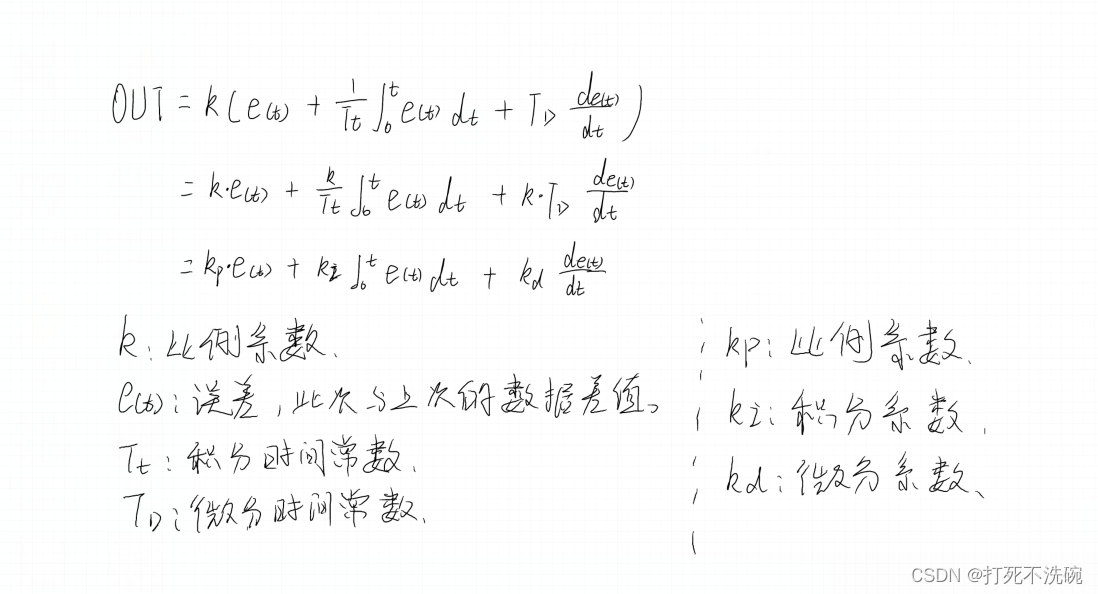 OUT = k(e(t) + 1/Tt ∫₀ᵗ e(t) dt + TD de(t)/dt)
= k·e(t) + k/Tt ∫₀ᵗ e(t) dt + k·TD de(t)/dt
= kp·e(t) + ki ∫₀ᵗ e(t) dt + kd de(t)/dt
k：比例系数.
e(t)：误差，此次与上次的数据差值。
Tt：积分时间常数.
TD：微分时间常数.
kp：比例系数.
ki：积分系数.
kd：微分系数、
CSDN @打死不洗碗